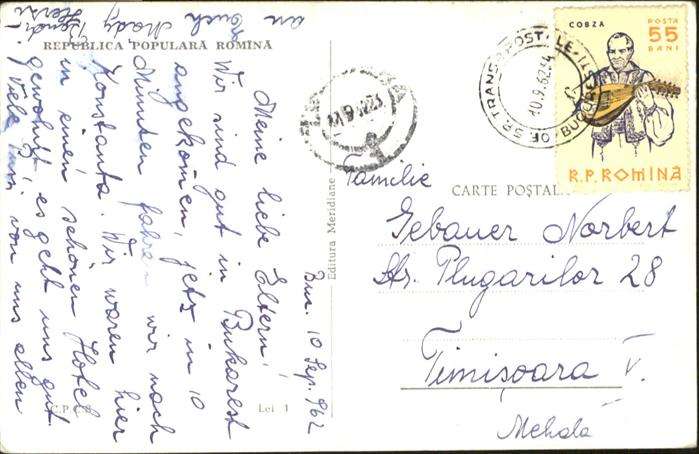 REPUBLICA POPULARĂ ROMÎNĂ
Buc. 10 Sep. 962
Meine liebe Eltern!
Wir sind gut in Bukarest
angekomen, jetz in 10
Minuten fahren wir nach
Konstanta. Wir waren hier
in einen schönen Hotel
gewohnt, es geht uns gut
Viele von uns allen
an euch
Editura Meridiane
C.P.C.S.
Lei 1
COBZA
POSTA
55
BANI
R.P. ROMINA
10.9.62
CARTE POȘTALĂ
Familie
Gebauer Norbert
Str. Plugarilor 28
Timișoara V.
Mehala